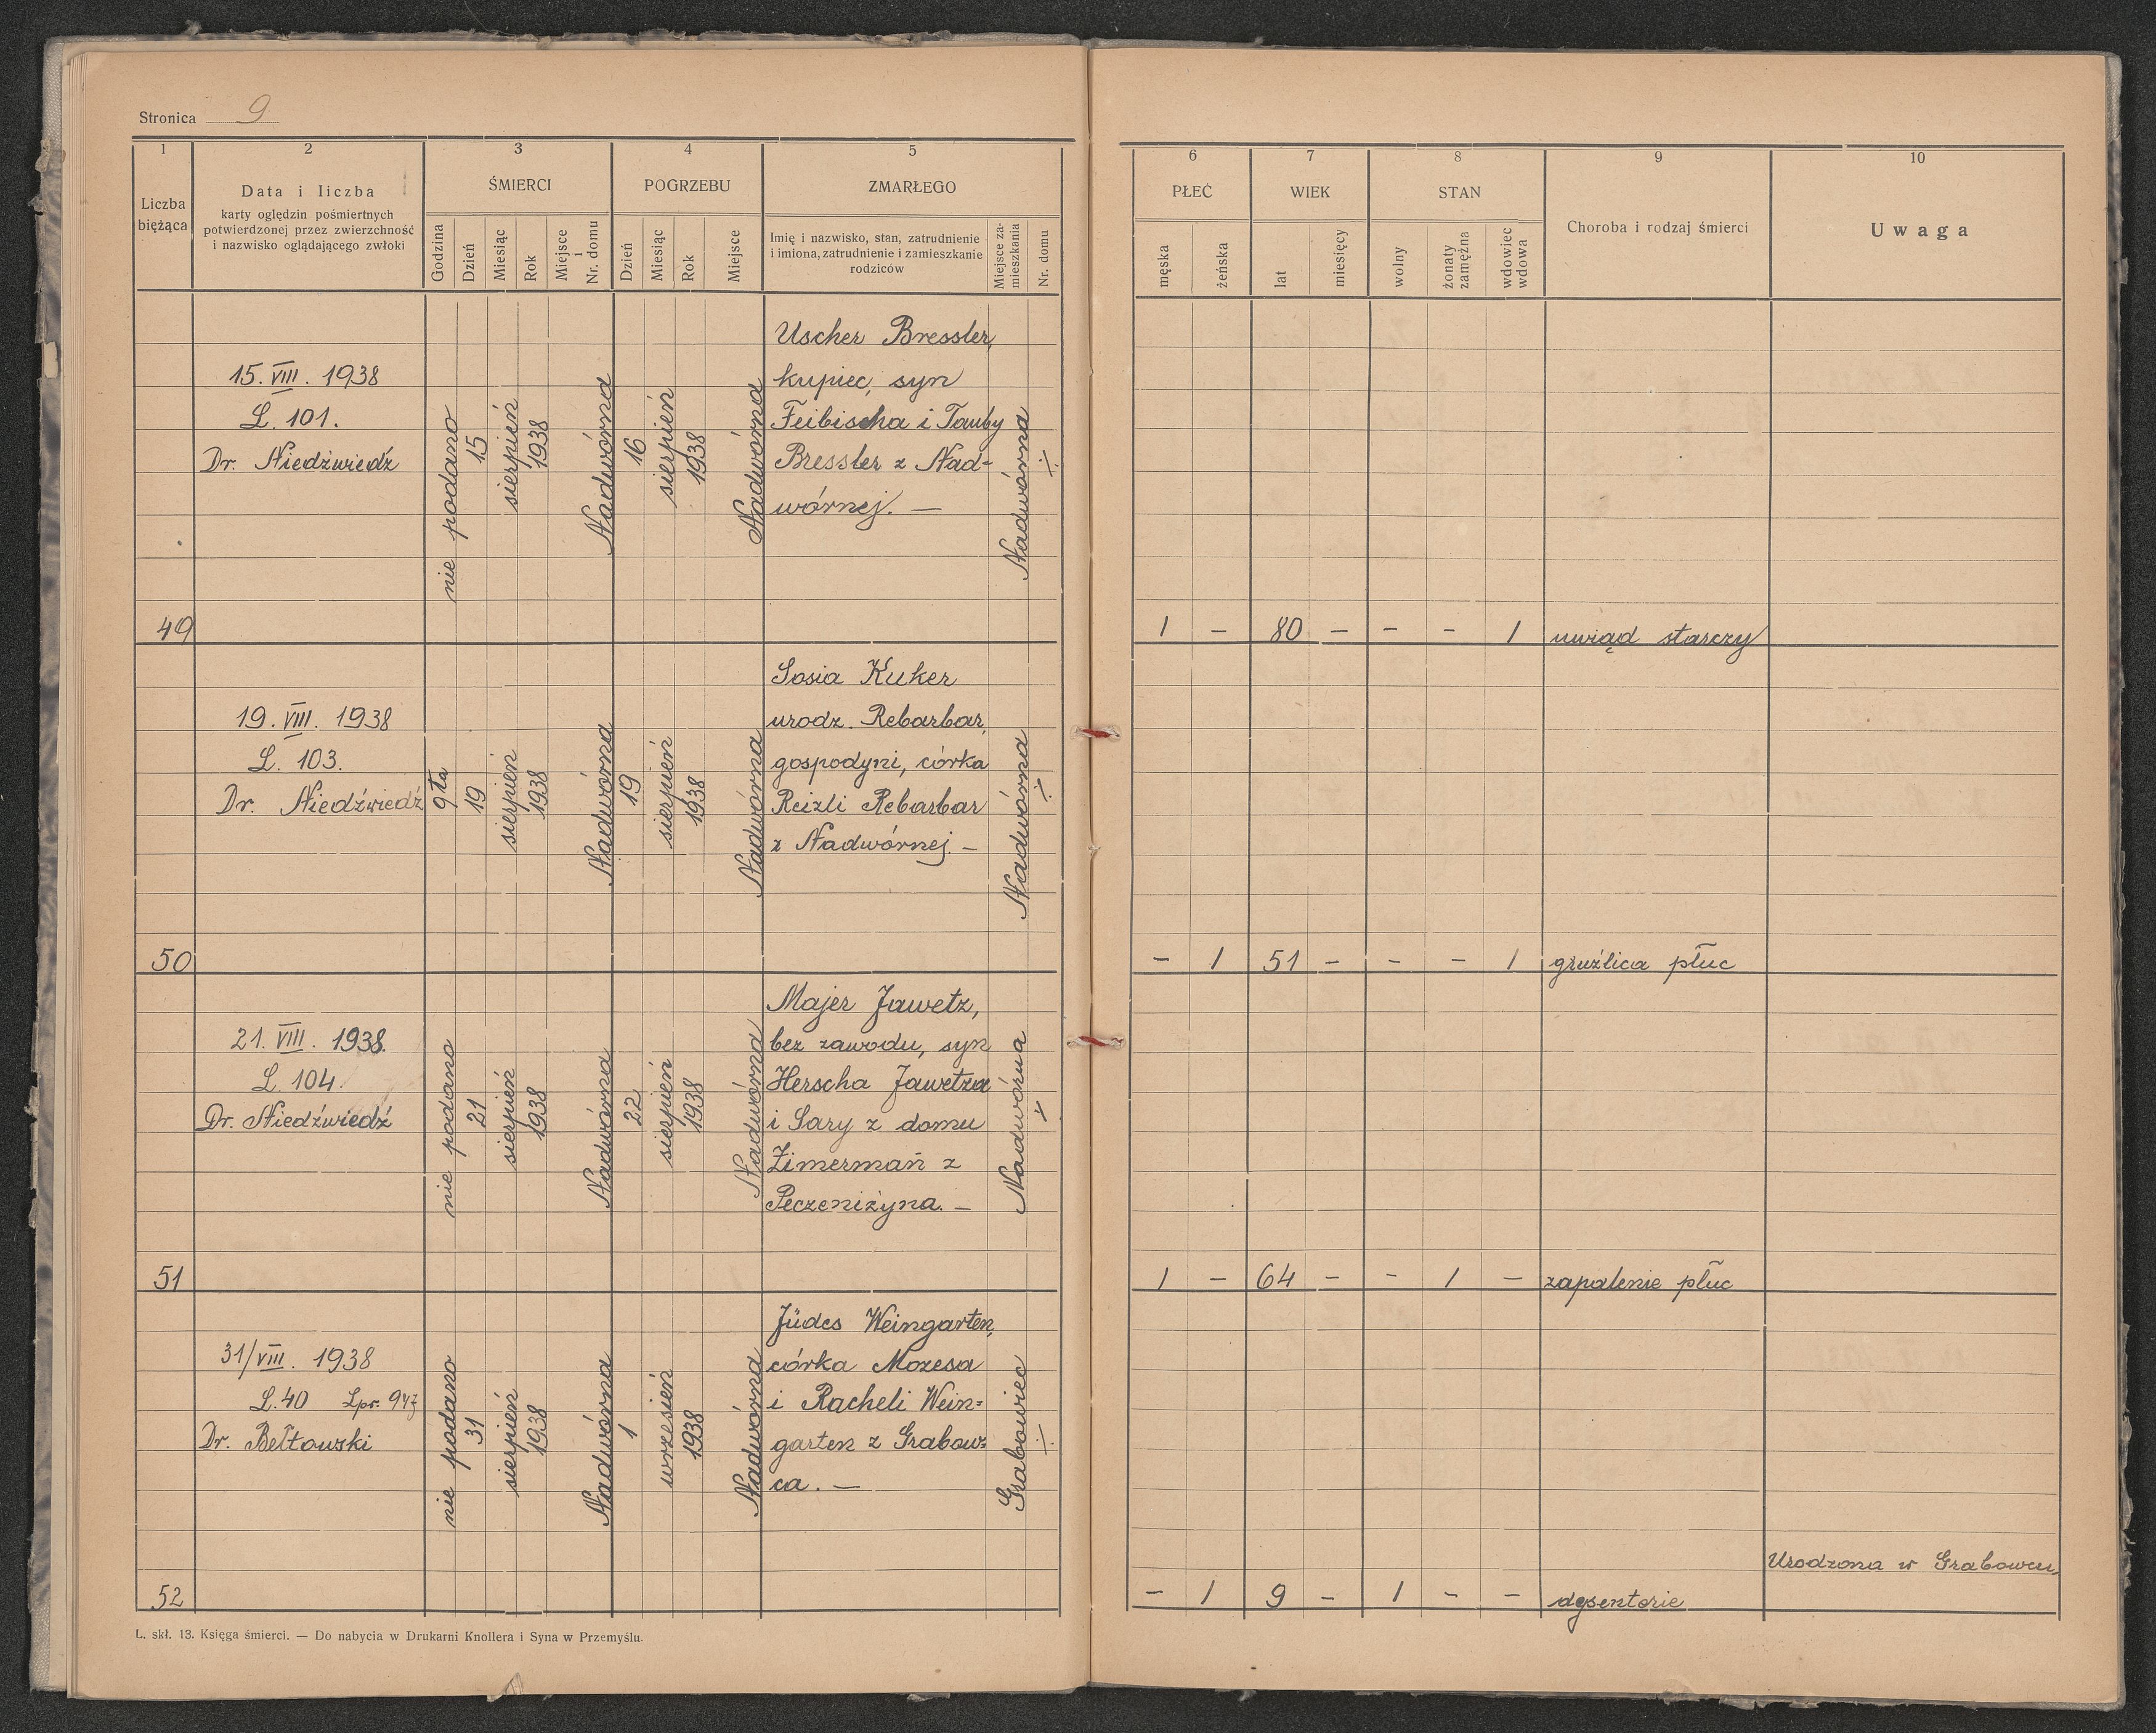 Stronica 9
1
2
3
4
5
6
7
8
9
10
Liczba
bieżąca
Data i liczba
karty oględzin pośmiertnych
potwierdzonej przez zwierzchność
i nazwisko oglądającego zwłoki
ŚMIERCI
Godzina
Dzień
Miesiąc
Rok
Miejsce
i
Nr. domu
POGRZEBU
Dzień
Miesiąc
Rok
Miejsce
ZMARŁEGO
Imię i nazwisko, stan, zatrudnienie
i imiona, zatrudnienie i zamieszkanie
rodziców
Miejsce za-
mieszkania
Nr. domu
PŁEĆ
męska
żeńska
WIEK
lat
miesięcy
STAN
wolny
żonaty
zamężna
wdowiec
wdowa
Choroba i rodzaj śmierci
Uwaga
49
15. VIII. 1938
L. 101.
Dr. Niedźwiedź
nie podano
15
sierpień
1938
Nadwórna
16
sierpień
1938
Nadwórna
Uscher Bressler,
kupiec, syn
Feibischa i Tauby
Bressler z Nad-
wórnej. —
Nadwórna
÷
1 – 80 – – – 1 uwiąd starczy
50
19. VIII. 1938
L. 103.
Dr. Niedźwiedź
9ta
19
sierpień
1938
Nadwórna
19
sierpień
1938
Nadwórna
Sosia Kuker
urodz. Rebarbar,
gospodyni, córka
Reizli Rebarbar
z Nadwórnej. —
Nadwórna
÷
– 1 51 – – – 1 gruźlica płuc
51
21. VIII. 1938.
L. 104.
Dr. Niedźwiedź
nie podano
21
sierpień
1938
Nadwórna
22
sierpień
1938
Nadwórna
Majer Jawetz,
bez zawodu, syn
Herscha Jawetza
i Sary z domu
Zimermań z
Peczeniżyna. —
Nadwórna
÷
1 – 64 – – 1 – zapalenie płuc
52
31/VIII. 1938
L. 40 Lpr. 947
Dr. Bełtowski
nie podano
31
sierpień
1938
Nadwórna
1
wrzesień
1938
Nadwórna
Jüdes Weingarten,
córka Mozesa
i Racheli Wein=
garten z Grabow=
ca. —
Grabowiec
÷
– 1 9 – 1 – – dysentorie
Urodzona w Grabowcu.
L. skł. 13. Księga śmierci. — Do nabycia w Drukarni Knollera i Syna w Przemyślu.